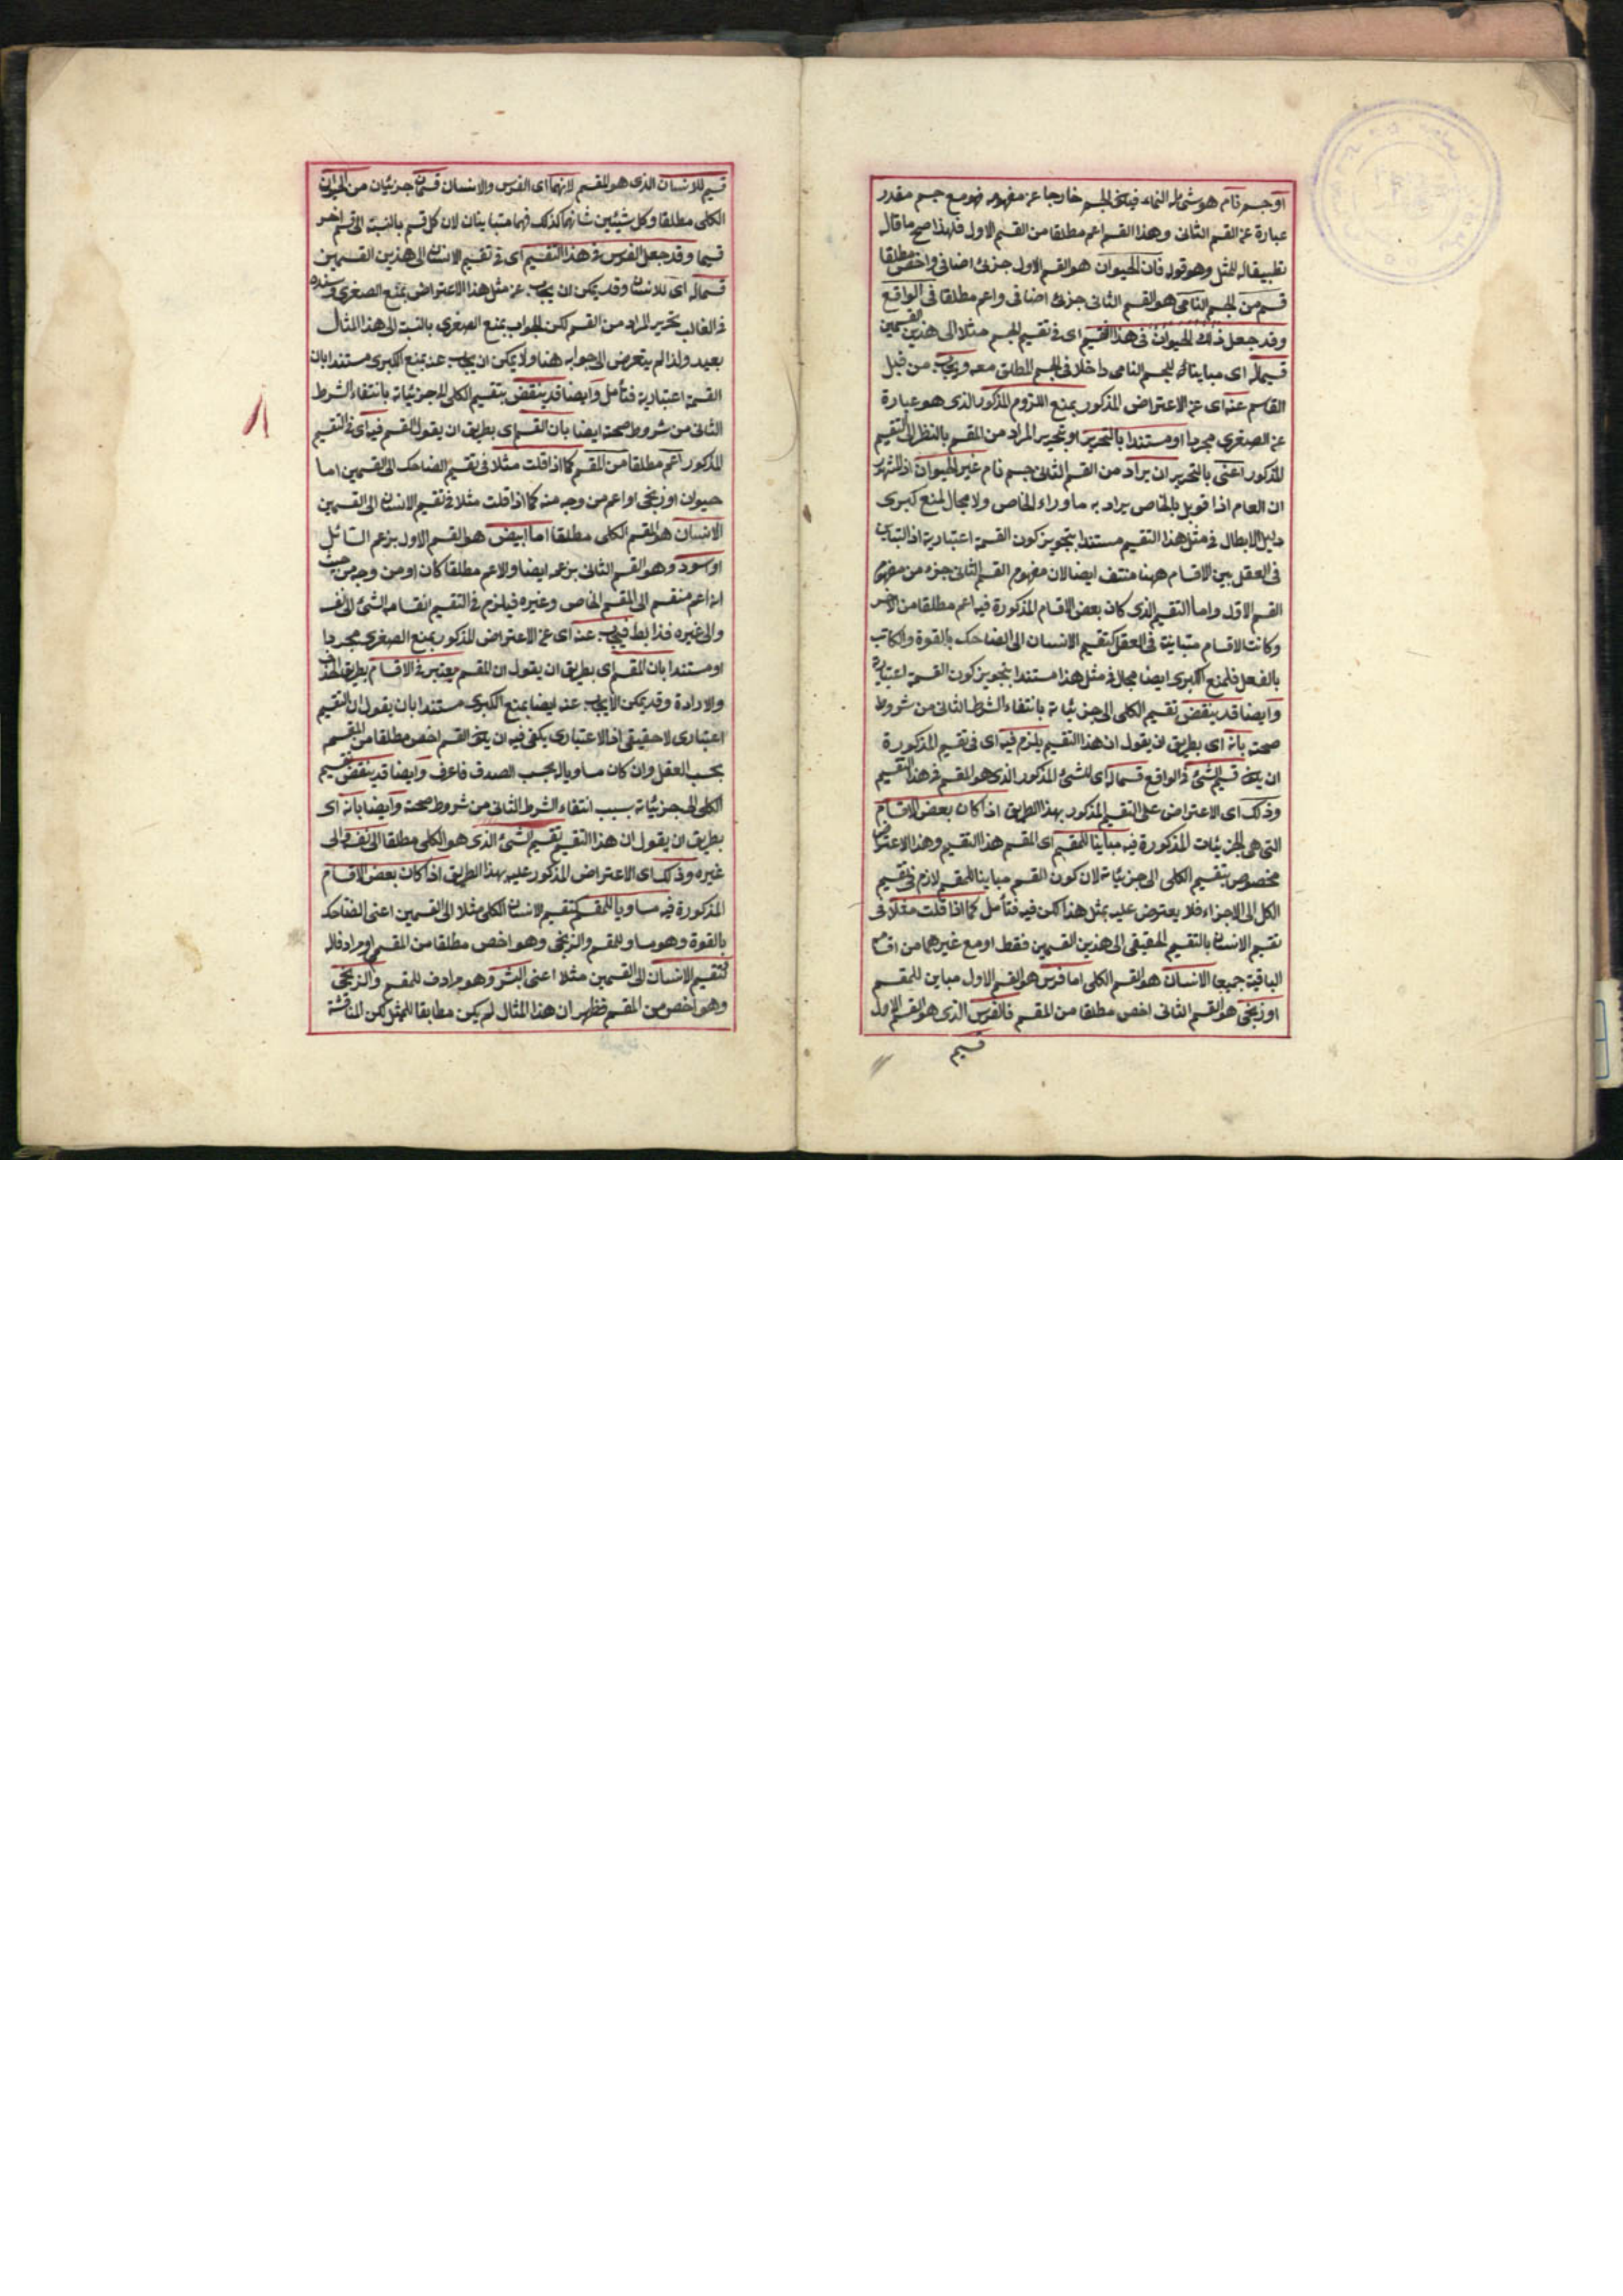 او جسم نام هو شئ له النماء فيكون الجسم خارجا عن مفهومه فهو مع جسم مقدر
عبارة عن القسم الثانى وهذا القسم اعم مطلقا من القسم الاول فلهذا صح ما قال
تطبيقا له للمثل وهو قوله فان الحيوان هو القسم الاول جزئ اضافى واخص مطلقا
قسم من الجسم النامى هو القسم الثانى جزئ اضافى واعم مطلقا فى الواقع
وقد جعل ذلك الحيوان فى هذا التقسيم اى فى تقسيم الجسم مثلا الى هذين القسمين
قسيما له اى مباينا له للجسم النامى داخلا فى الجسم المطلق معه ويجاب من قبل
القاسم عنه اى عن الاعتراض المذكور بمنع اللزوم المذكور الذى هو عبارة
عن الصغرى مجردا او مستندا بالتحرير او بتحرير المراد من المقسم بالنظر الى التقسيم
المذكور اعنى بالتحرير ان يراد من القسم الثانى جسم نام غير الحيوان اذ المشهور
ان العام اذا قوبل بالخاص يراد به ما وراء الخاص ولا مجال لمنع كبرى
دليل الابطال فى مثل هذا التقسيم مستندا بتجويز كون القسمة اعتبارية اذ التباين
فى العقل بين الاقسام ههنا منتف ايضا لان مفهوم القسم الثانى جزء من مفهوم
القسم الاول واما التقسيم الذى كان بعض الاقسام المذكورة فيه اعم مطلقا من الاخر
وكانت الاقسام متباينة فى العقل كتقسيم الانسان الى الضاحك بالقوة والكاتب
بالفعل فلمنع الكبرى ايضا مجال فى مثل هذا مستندا بتجويز كون القسمة اعتبارية
وايضا قد ينقض تقسيم الكلى الى جزئياته بانتفاء الشرط الثانى من شروط
صحته بانه اى بطريق ان يقول ان هذا التقسيم يلزم فيه اى فى تقسيم المذكورة
ان يكون قسيم الشئ فى الواقع قسما له اى للشئ المذكور الذى هو المقسم فى هذا التقسيم
وذلك اى الاعتراض على التقسيم المذكور بهذا الطريق اذا كان بعض الاقسام
التى هى الجزئيات المذكورة فيه مباينا للمقسم اى المقسم هذا التقسيم وهذا الاعتراض
مخصوص بتقسيم الكلى الى جزئياته لان كون القسم مباينا للمقسم لازم فى تقسيم
الكل الى الاجزاء فلا يعترض عليه بمثل هذا لكن فيه فتأمل كما اذا قلت مثلا فى
تقسيم الانسان بالتقسيم الحقيقى الى هذين القسمين فقط او مع غيرهما من اقسام
الباقية جميعا الانسان هو المقسم الكلى اما فرس هو القسم الاول مباين للمقسم
او زنجى هو القسم الثانى اخص مطلقا من المقسم فالفرس الذى هو القسم الاول
قسيم
قسيم للانسان الذى هو المقسم لانهما اى الفرس والانسان قسمان جزئيان من الحيوان
الكلى مطلقا وكل شيئين شانهما كذلك فهما متباينان لان كل قسم بالنسبة الى قسم اخر
قسيما وقد جعل الفرس فى هذا التقسيم اى فى تقسيم الانسان الى هذين القسمين
قسما له اى للانسان وقد يمكن ان يجاب عن مثل هذا الاعتراض بمنع الصغرى وسنده
فى الغالب تحرير المراد من القسم لكن الجواب بمنع الصغرى بالنسبة الى هذا المثال
بعيد ولذا لم يتعرض الى جوابه هنا ولا يمكن ان يجاب عنه بمنع الكبرى مستندا بان
القسمة اعتبارية فتأمل وايضا قد ينقض بتقسيم الكلى الى جزئياته بانتفاء الشرط
الثانى من شروط صحته ايضا بان القسم اى بطريق ان يقول القسم فيه اى فى التقسيم
المذكور اعم مطلقا من المقسم كما اذا قلت مثلا فى تقسيم الضاحك الى القسمين اما
حيوان او زنجى او اعم من وجه منه كما اذا قلت مثلا فى تقسيم الانسان الى القسمين
الانسان هو المقسم الكلى مطلقا اما ابيض هو القسم الاول بزعم السائل
او اسود وهو القسم الثانى بزعمه ايضا والاعم مطلقا كان او من وجه من حيث
انه اعم منقسم الى المقسم الخاص وغيره فيلزم فى التقسيم انقسام الشئ الى نفسه
والى غيره فذا بط فيجاب عنه اى عن الاعتراض المذكور بمنع الصغرى مجردا
او مستندا بان المقسم اى بطريق ان يقول ان المقسم معتبر فى الاقسام بطريق الحذف
والارادة وقد يمكن الا يجاب عنه ايضا بمنع الكبرى مستندا بان يقول ان التقسيم
اعتبارى لا حقيقى اذ الاعتبارى يكفى فيه ان يكون القسم اخص مطلقا من المقسم
بحسب العقل وان كان مساويا له بحسب الصدق فاعرف وايضا قد ينقض تقسيم
الكلى الى جزئياته بسبب انتفاء الشرط الثانى من شروط صحته وايضا بانه اى
بطريق ان يقول ان هذا التقسيم تقسيم الشئ الذى هو الكلى مطلقا الى نفسه والى
غيره وذلك اى الاعتراض المذكور عليه بهذا الطريق اذا كان بعض الاقسام
المذكورة فيه مساويا للمقسم كتقسيم الانسان الكلى مثلا الى القسمين اعنى الضاحك
بالقوة وهو مساو للمقسم والزنجى وهو اخص مطلقا من المقسم او مرادفا له
كتقسيم الانسان الى القسمين مثلا اعنى البشر وهو مرادف للمقسم والزنجى
وهو اخص من المقسم فظهر ان هذا المثال لم يكن مطابقا للمثل لكن المناقشة